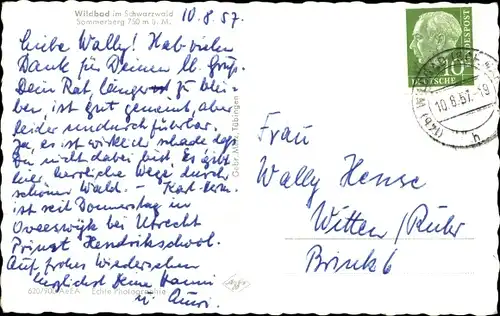 Wildbad im Schwarzwald
Sommerberg 750 m ü. M.
10.8.57.
Liebe Wally! Hab vielen
Dank für Deinen lb. Gruß.
Dein Rat, länger zu blei-
ben, ist gut gemeint, aber
leider undurchführbar.
Ja, es ist wirklich schade daß
Du nicht dabei bist. Es gibt
hier herrliche Wege durch
schönen Wald. –
ist seit Donnerstag in
bei Utrecht
Prinst Hendrikschool.
Auf frohes Wiedersehen
herzlichst Deine Hanni
u.
620/900 AeEA Echte Photographie
Gebr. Metz, Tübingen
DEUTSCHE BUNDESPOST
10
10.8.57.-19
h
Frau
Wally Hense
Witten/Ruhr
Brink 6